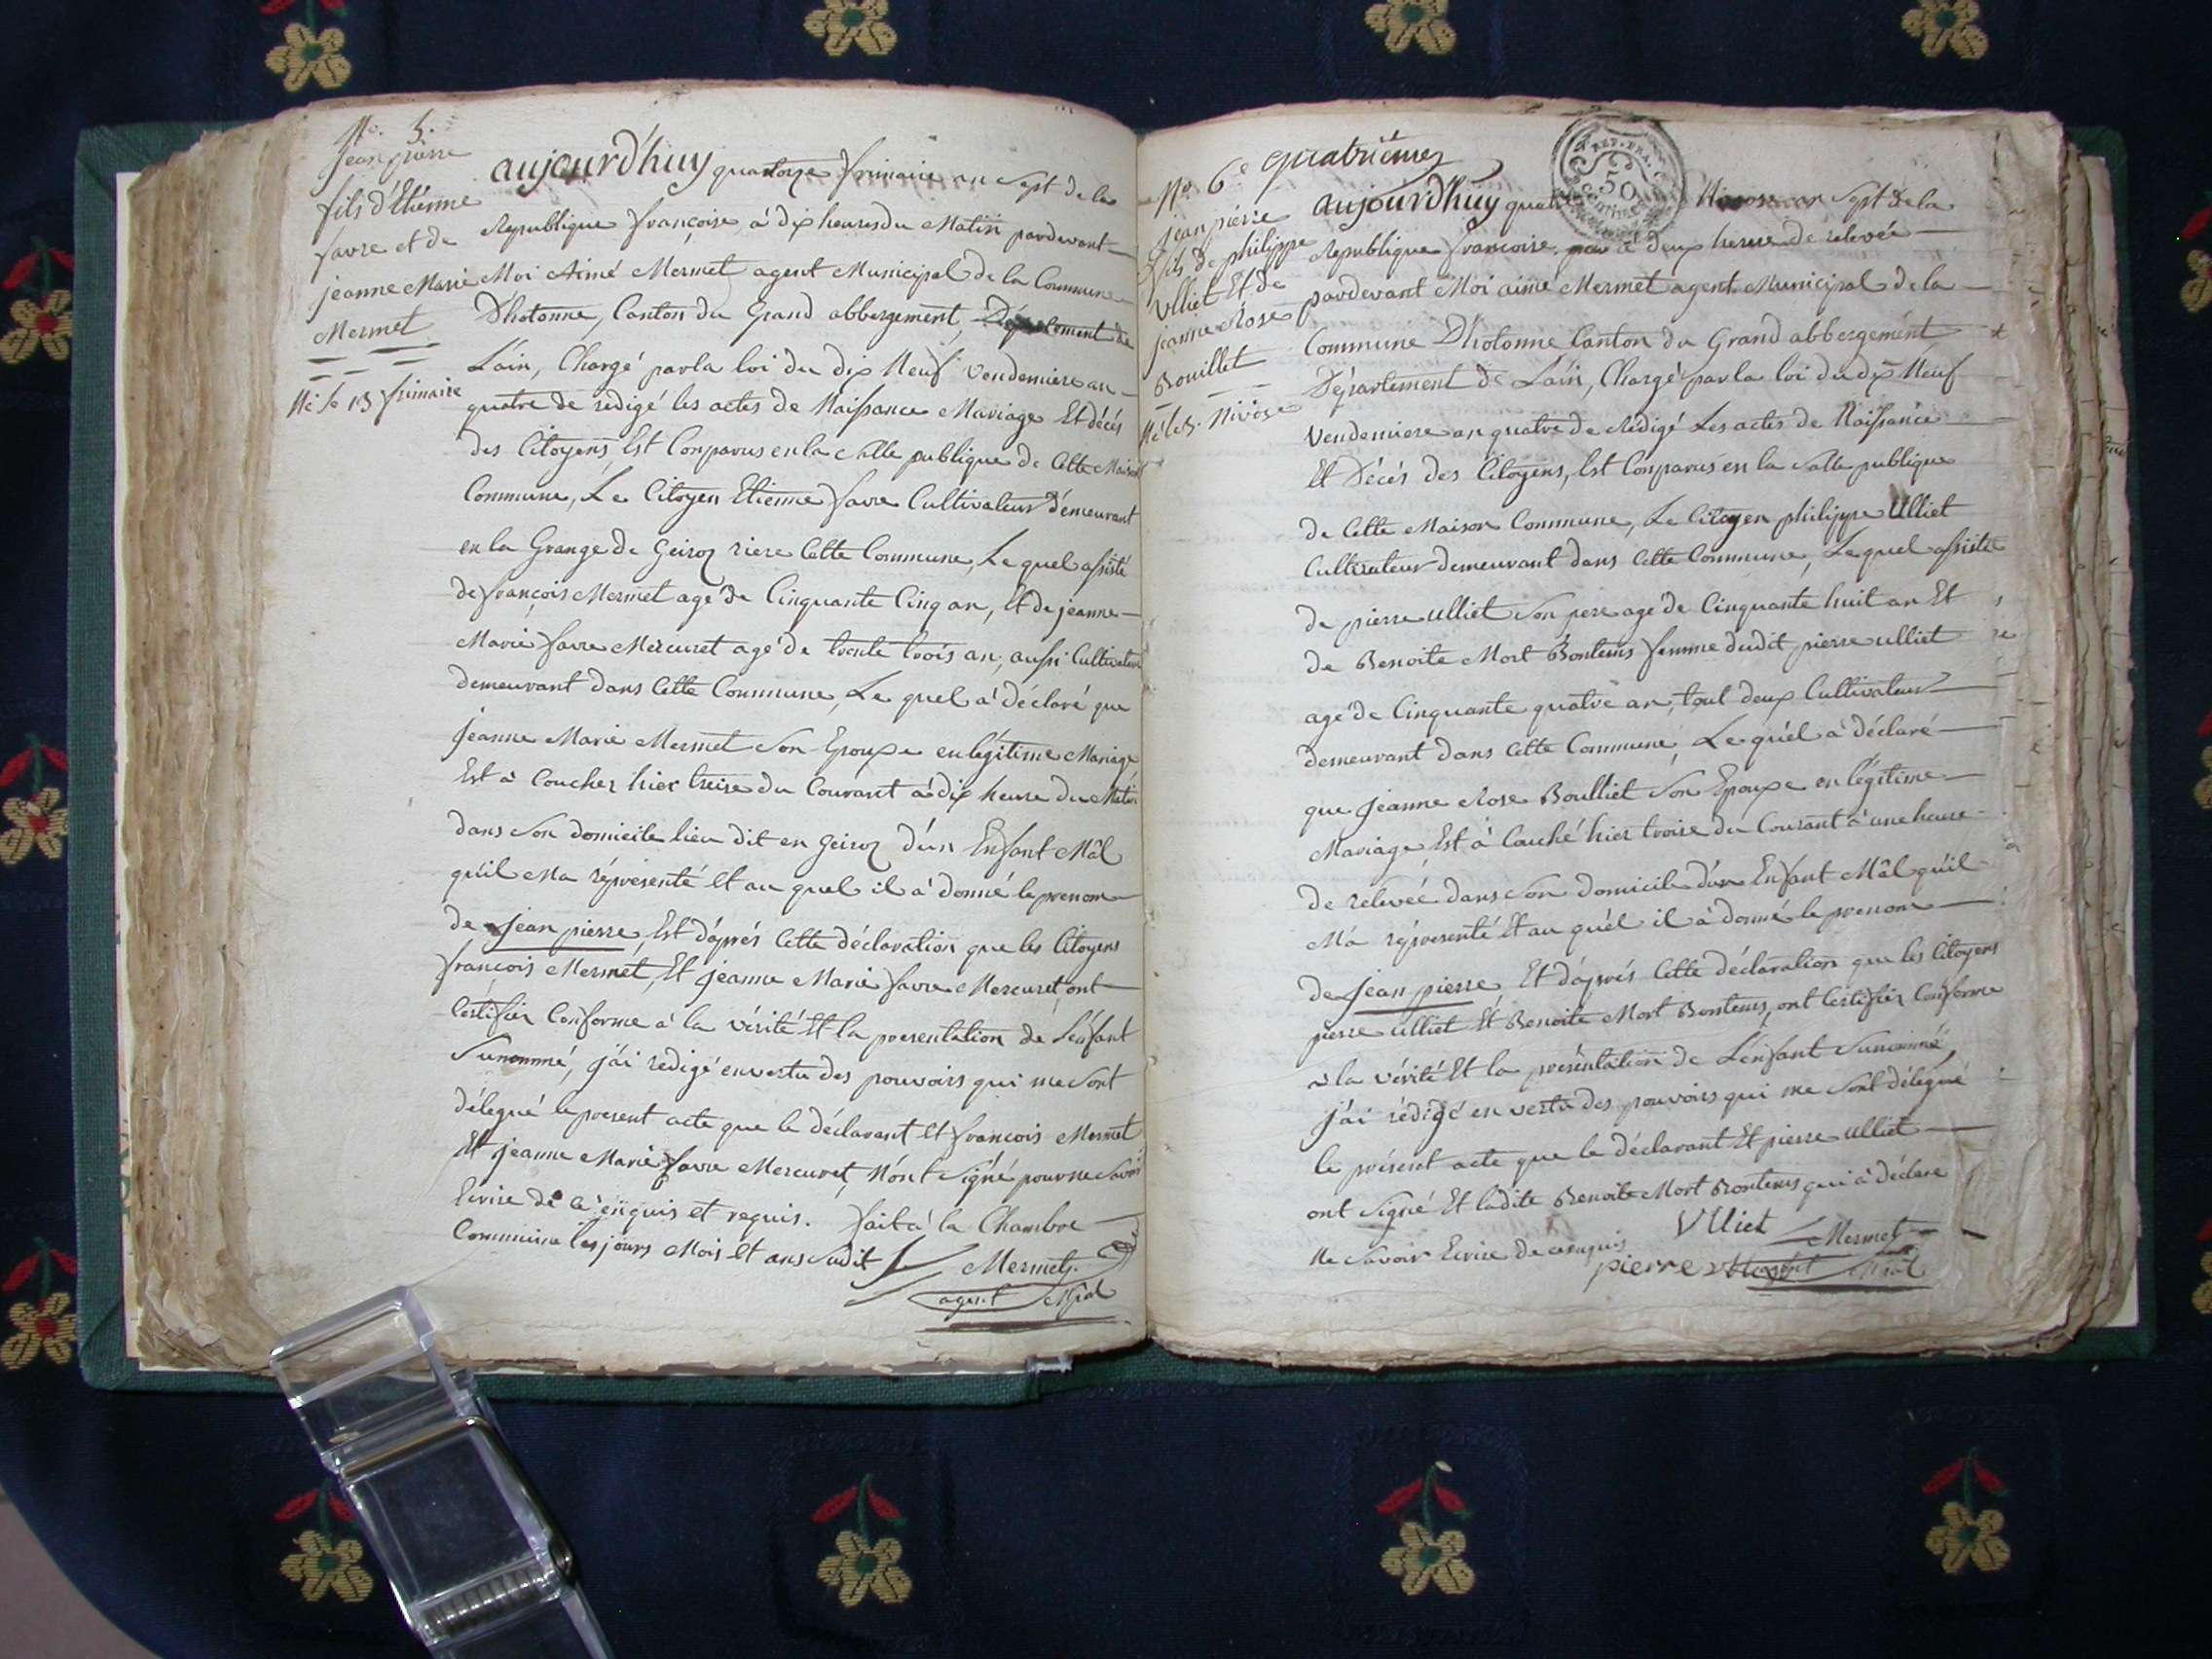 No. 5.
jean pierre
fils d'Etienne
favre et de
jeanne Marie
Mermet
Né le 13 frimaire
aujourd'huy quatorze frimaire an sept de la
Republique françoise, à dix heures du Matin pardevant
Moi Aimé Mermet agent Municipal de la Commune
D'hotonne, Canton du Grand abbergement, Département de
L'ain, Chargé par la loi du dix Neuf Vendemiere an
quatre de redigé les actes de Naissance Mariage Et décés
des Citoyens Est Conparus en la Salle publique de Cette Maison
Commune, Le Citoyen Etienne favre Cultivateur démeurant
en la Grange de Geiroz riere Cette Commune, Le quel assisté
de françois Mermet agé de Cinquante Cinq an, Et de jeanne
Marie favre Mercuret agé de trente trois an, aussi Cultivateur
demeurant dans Cette Commune, Le quel à déclaré que
Jeanne Marie Mermet Son Epouse en légitime Mariage
Est à Coucher hier treize du Courant à dix heure du Matin
dans Son domicile lieu dit en Geiroz d'un Enfant Mâl
qu'il Ma réprésenté Et au quel il à donné le prenom
de Jean pierre, Est d'aprés Cette déclaration que les Citoyens
françois Mermet, Et Jeanne Marie favre Mercuret, ont
Certifier Conforme à la vérité Et la presentation de L'enfant
Sunommé, j'ai redigé en vertu des pouvoirs qui me Sont
délegué le present acte que le déclarant Et françois Mermet
Et Jeanne Marie favre Mercuret, N'ont Signé pour ne Savoir
Ecrire de ce enquis et requis. fait à la Chambre
Commune les jours Mois Et ans Sudit
Mermet
agent Mpal
No. 6e quatriémes
Jean pierre
fils de philippe
Ulliet Et de
jeanne Rose
Bouillet
Né le 3. Nivose
REP. FRA.
50
Centimes
aujourd'huy quatre Nivose an Sept de la
Republique françoise à deux heures de relevée
pardevant Moi aimé Mermet agent Municipal de la
Commune D'hotonne Canton du Grand abbergement
Département de L'ain, Chargé par la loi du dix Neuf
Vendemiere an quatre de Rédigé Les actes de Naissance
Et Décés des Citoyens, Est Conparus en la Salle publique
de Cette Maison Commune, Le Citoyen philippe Ulliet
Cultivateur demeurant dans Cette Commune, Le quel assisté
de pierre ulliet Son pere agé de Cinquante huit an Et
de Benoite Mort Bontems femme dudit pierre ulliet
agé de Cinquante quatre an, tout deux Cultivateur
demeurant dans Cette Commune, Le quél à déclaré
que Jeanne Rose Boulliet Son Epouse en légitime
Mariage Est à Couché hier troise du Courant à une heure
de relevée dans Son domicile d'un Enfant Mâl qu'il
M'a réprésenté Et au quél il à donné le prenom
de Jean pierre Et d'aprés Cette déclaration que les Citoyens
pierre ulliet Et Benoite Mort Bontems, ont Certifier Conforme
à la vérité Et la présentation de L'enfant Sunommé
j'ai rédigé en vertu des pouvoirs qui me Sont délegué
le présent acte que le déclarant Et pierre ulliet
ont Signé Et ladite Benoite Mort Bontems qui à déclare
Ne Savoir Ecrire de ce enquis
Ulliet
Mermet
pierre